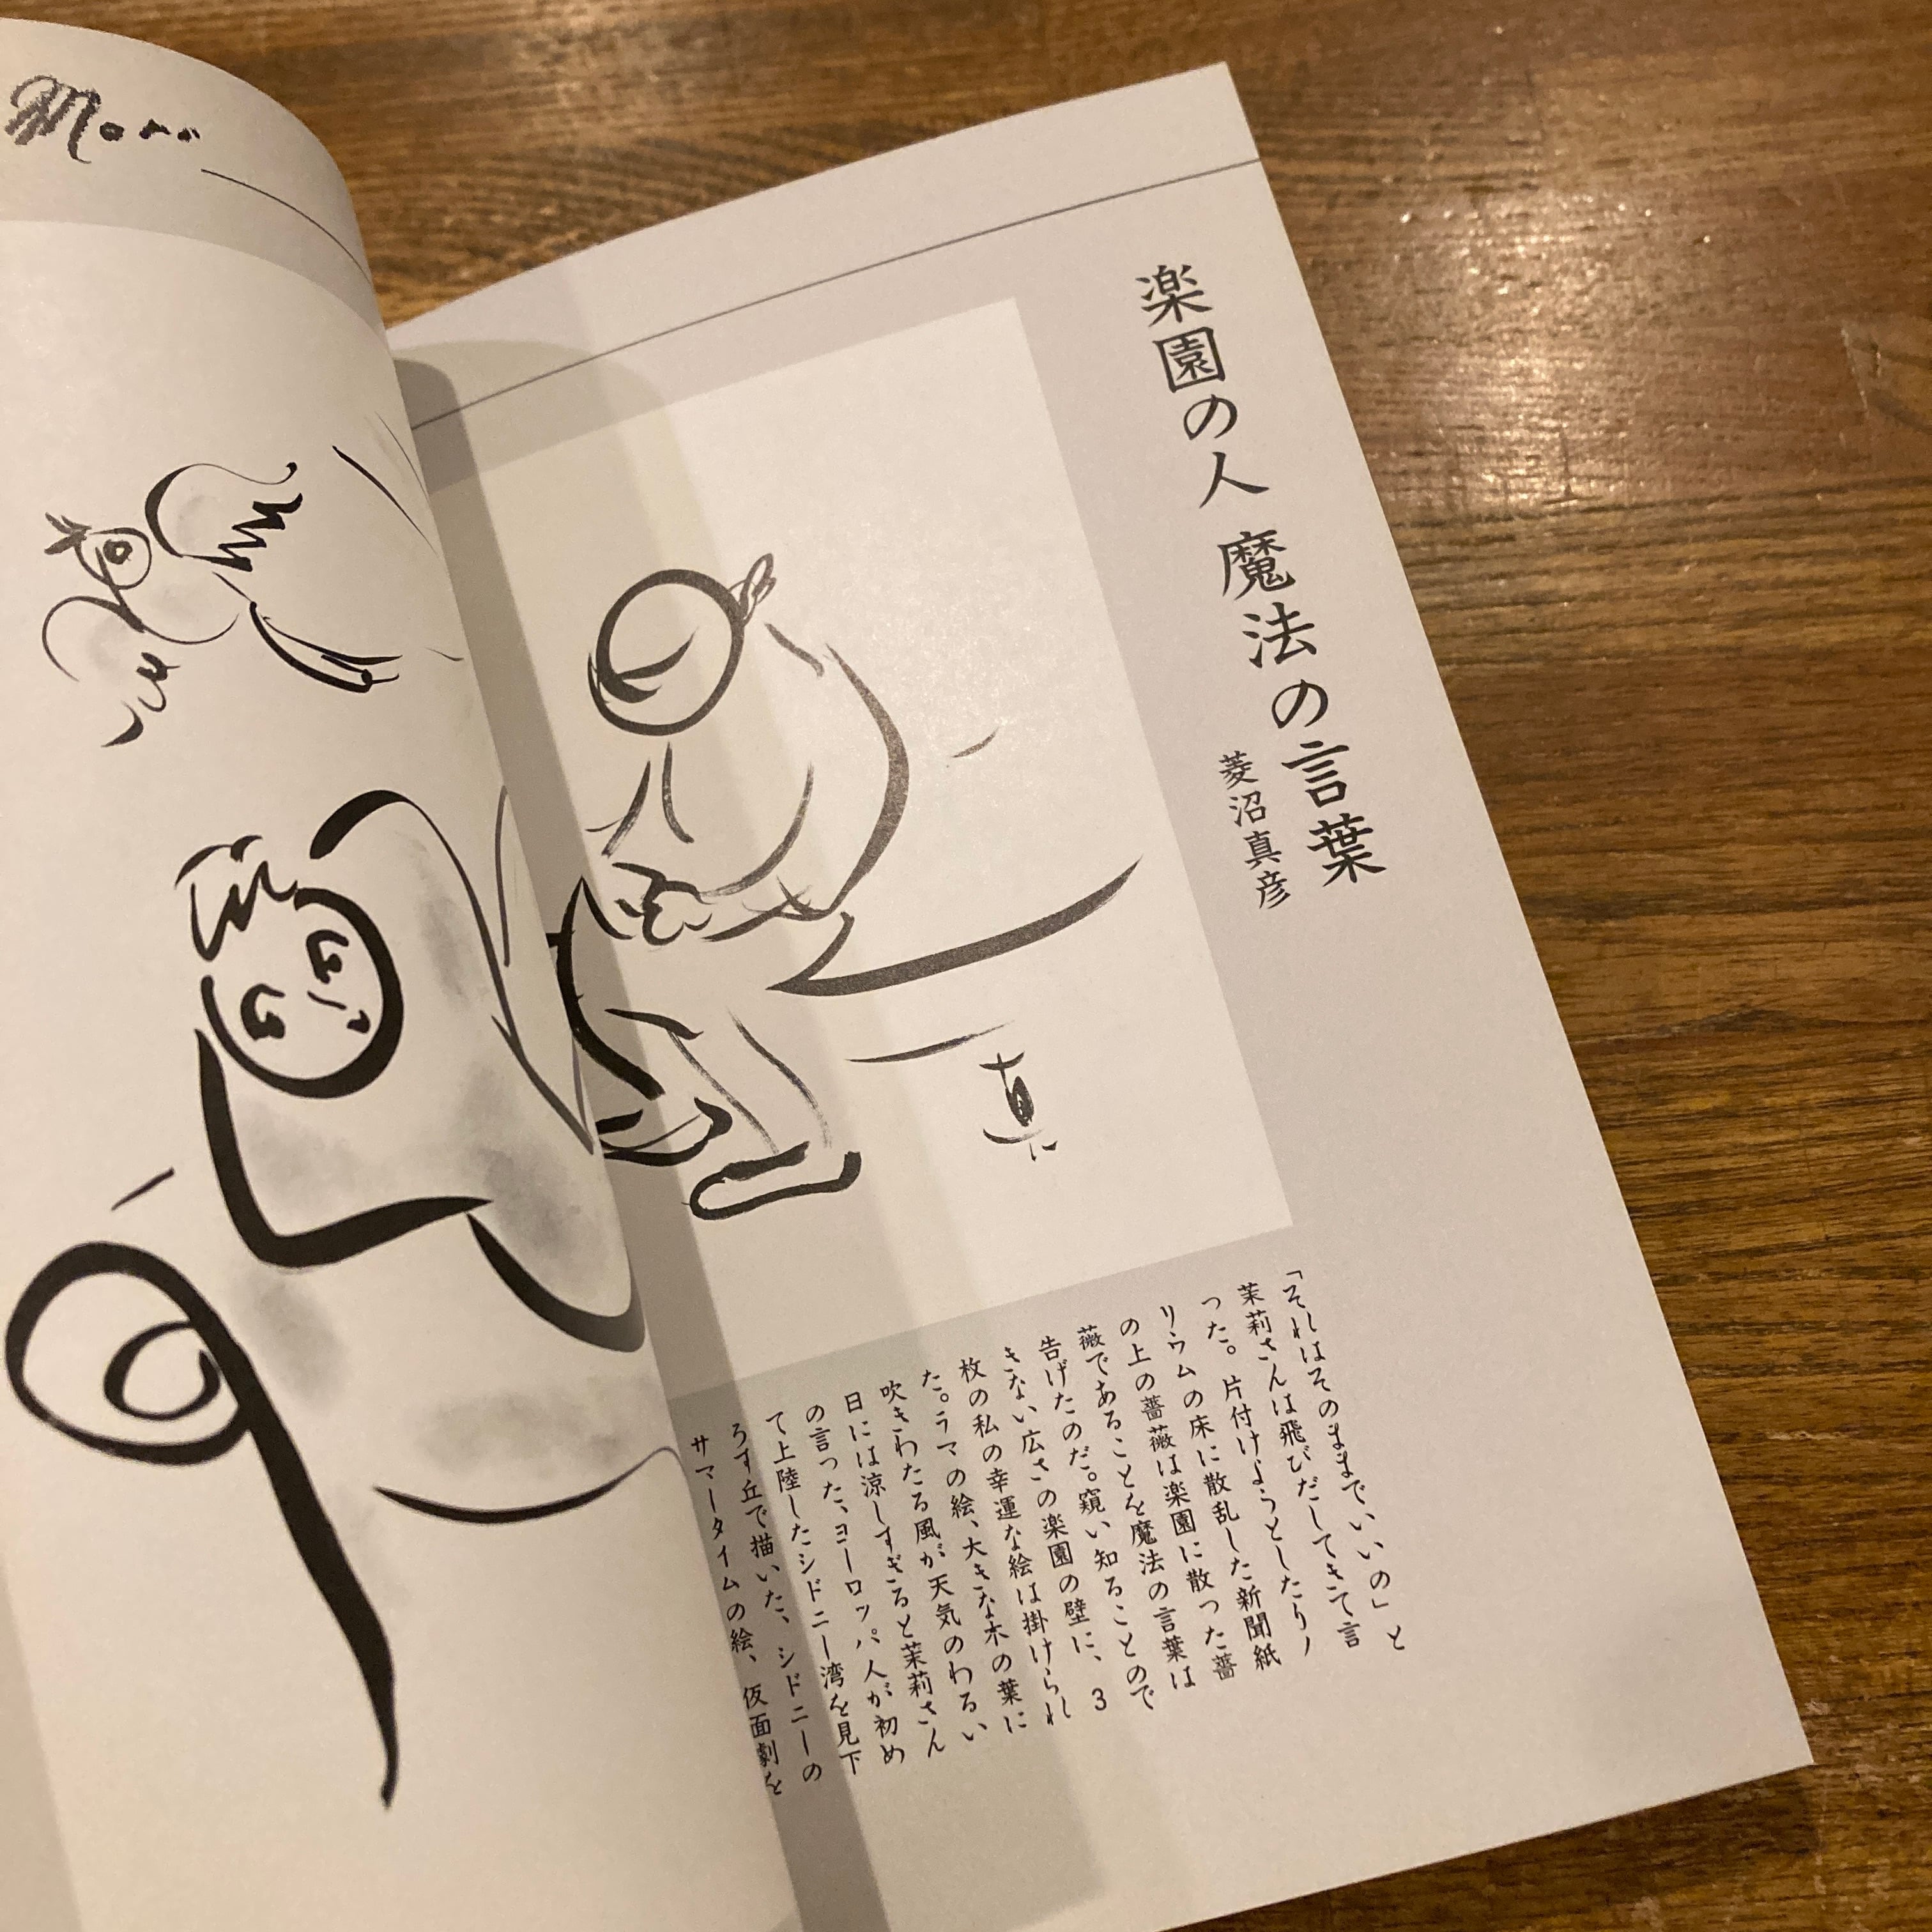 楽園の人 魔法の言葉
菱沼真彦
「それはそのままでいいの」と
茉莉さんは飛びだしてきて言
った。片付けようとしたリノ
リウムの床に散乱した新聞紙
の上の薔薇は楽園に散った薔
薇であることを魔法の言葉は
告げたのだ。窺い知ることので
きない広さの楽園の壁に、3
枚の私の幸運な絵は掛けられ
た。ラマの絵、大きな木の葉に
吹きわたる風が天気のわるい
日には涼しすぎると茉莉さん
の言った、ヨーロッパ人が初め
て上陸したシドニー湾を見下
ろす丘で描いた、シドニーの
サマータイムの絵、仮面劇を